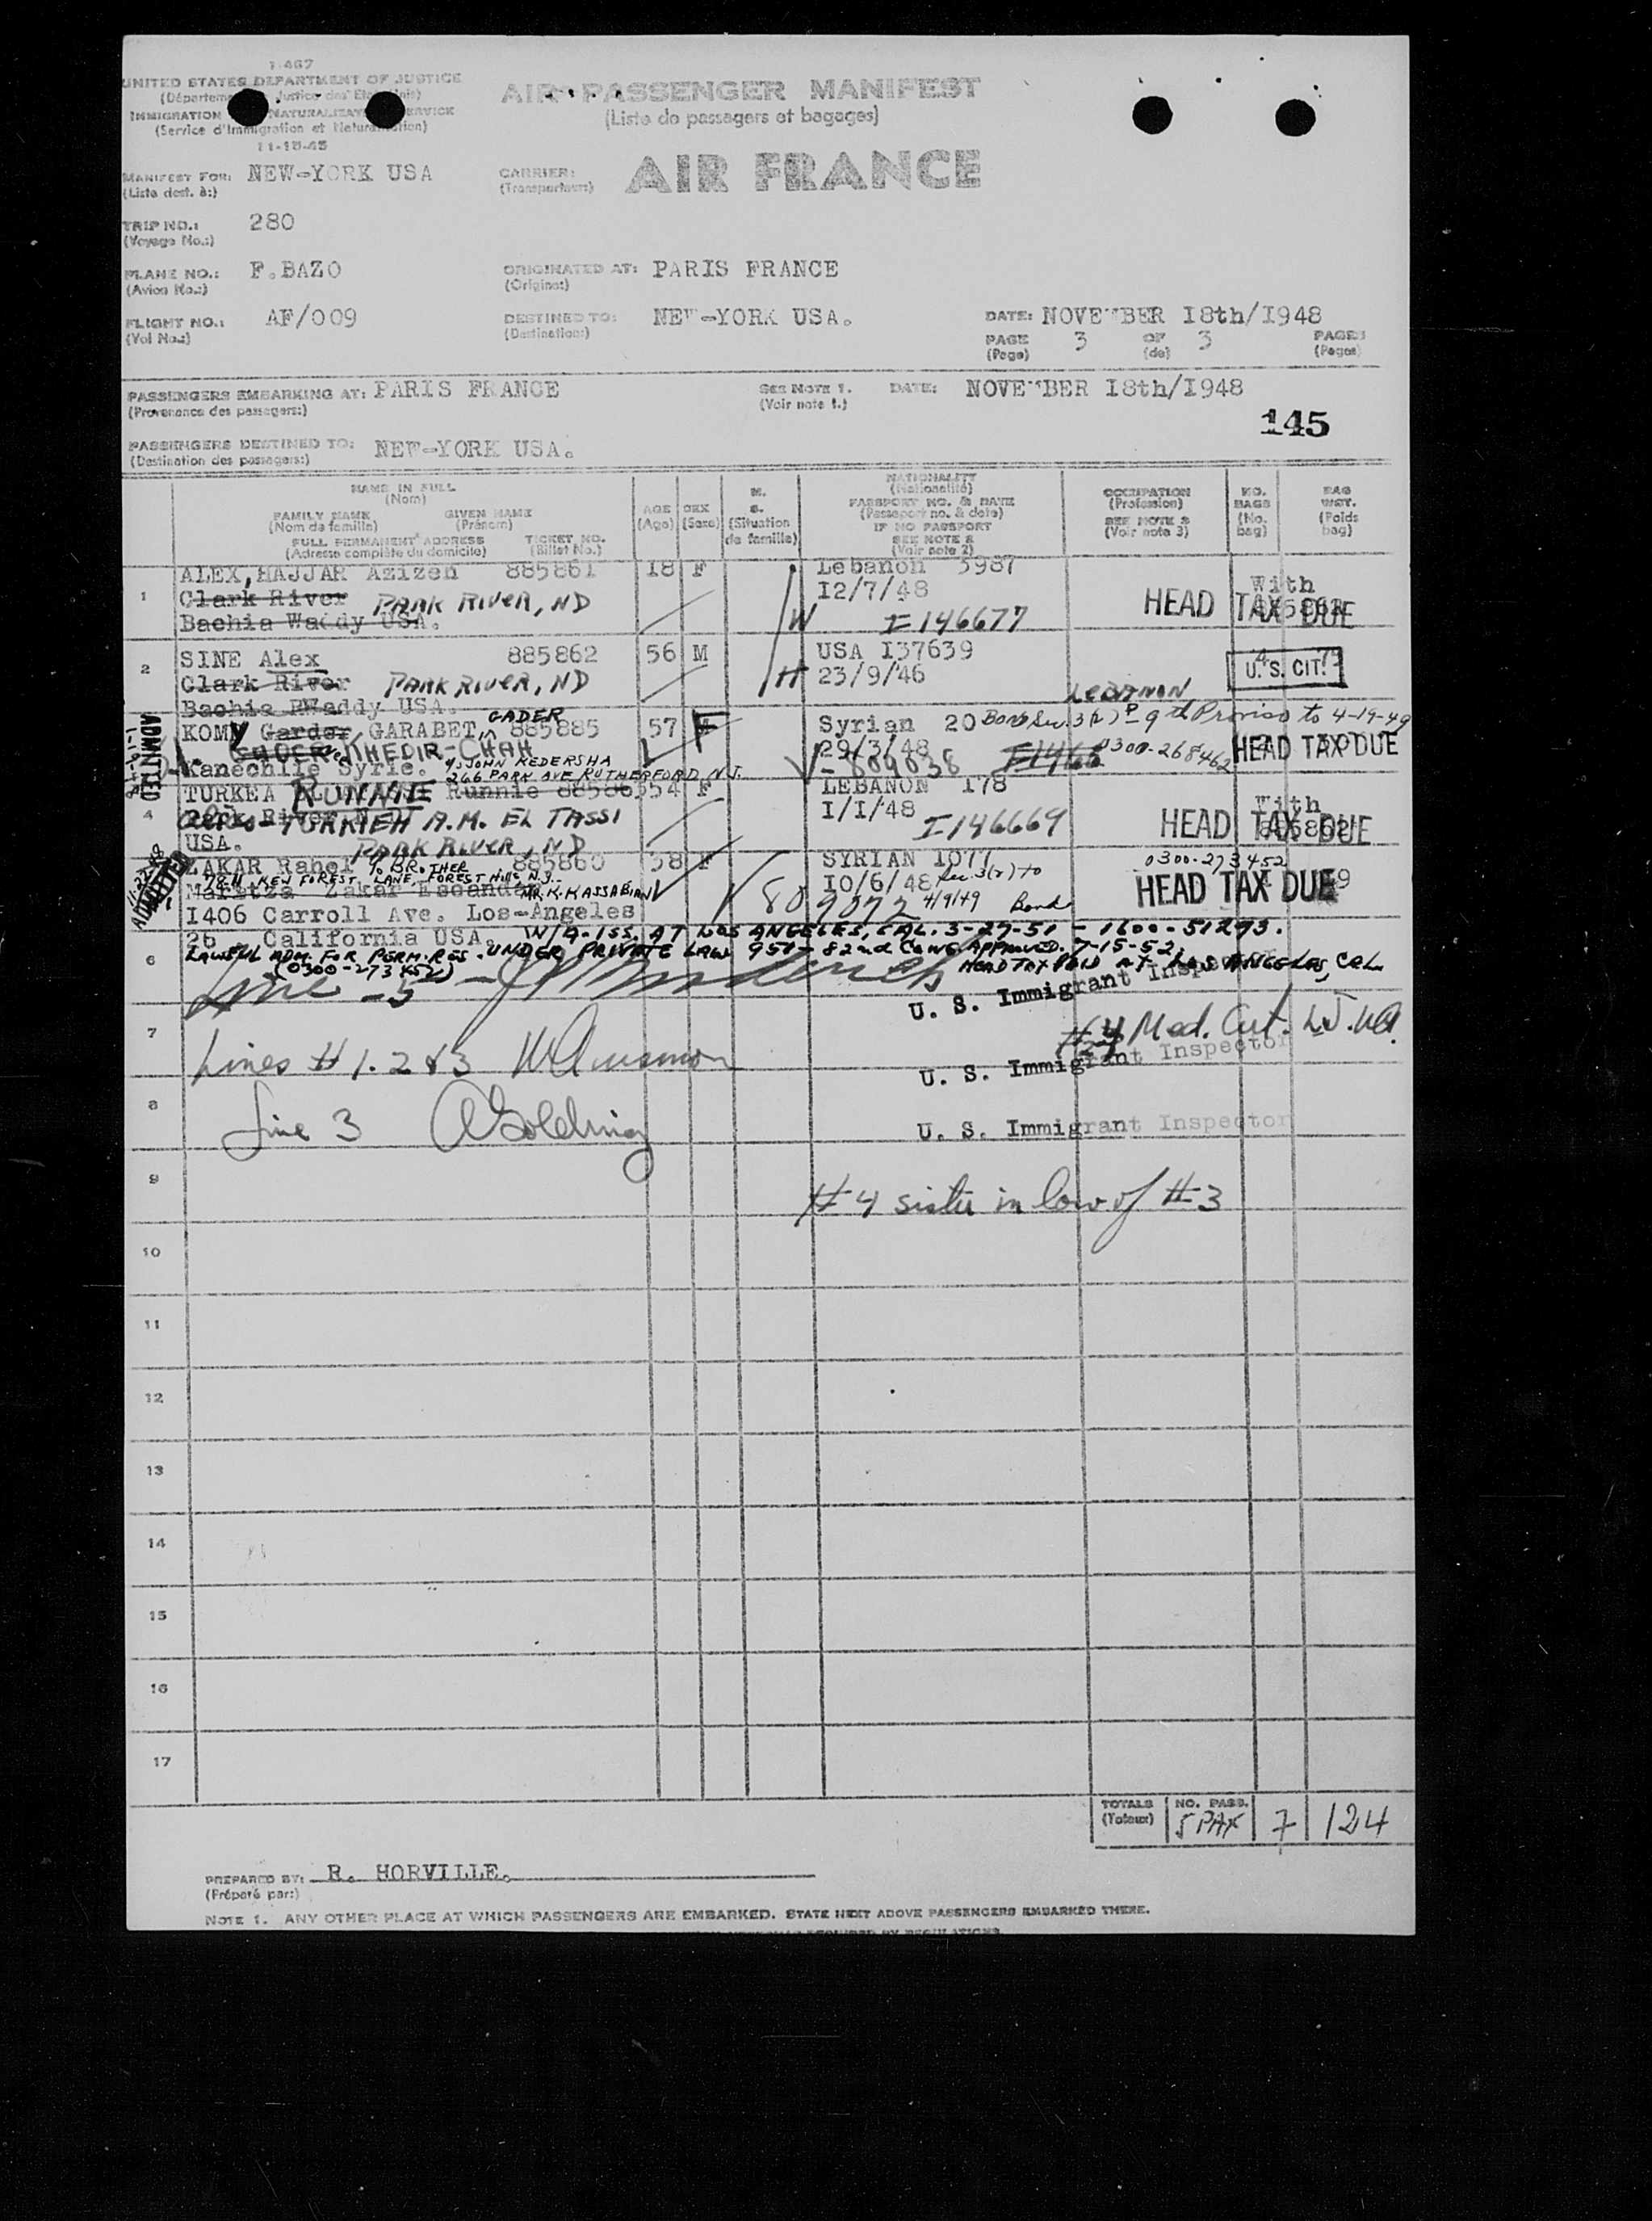 I-467
UNITED STATES DEPARTMENT OF JUSTICE
(Département Justice des Etats Unis)
IMMIGRATION NATURALIZATION SERVICE
(Service d'Immigration et Naturalisation)
11-15-45
AIR PASSENGER MANIFEST
(Liste de passagers et bagages)
MANIFEST FOR: NEW-YORK USA
(Liste dest. à:)
CARRIER: AIR FRANCE
(Transporteurs)
TRIP NO.: 280
(Voyage No.:)
PLANE NO.: F.BAZO
(Avion No.:)
ORIGINATED AT: PARIS FRANCE
(Origine:)
FLIGHT NO.: AF/009
(Vol No.:)
DESTINED TO: NEW-YORK USA.
(Destination:)
DATE: NOVEMBER I8th/I948
PAGE 3 OF 3 PAGES
(Page) (de) (Pages)
PASSENGERS EMBARKING AT: PARIS FRANCE
(Provenance des passagers:)
SEE NOTE 1.
(Voir note 1.)
DATE: NOVEMBER I8th/I948
145
PASSENGERS DESTINED TO: NEW-YORK USA.
(Destination des passagers:)
NAME IN FULL
(Nom)
FAMILY NAME GIVEN NAME
(Nom de famille) (Prénom)
FULL PERMANENT ADDRESS TICKET NO.
(Adresse complète du domicile) (Billet No.)
AGE
(Age)
SEX
(Sexe)
M.
S.
(Situation
de famille)
NATIONALITY
(Nationalité)
PASSPORT NO. & DATE
(Passeport no. & date)
IF NO PASSPORT
SEE NOTE 2
(Voir note 2)
OCCUPATION
(Profession)
SEE NOTE 3
(Voir note 3)
NO.
BAGS
(No.
bag)
BAG
WGT.
(Poids
bag)
1 ALEX, HAJJAR Azizeh 885861 I8 F Lebanon 5987 With
Clark River PARK RIVER, ND I2/7/48 HEAD TAX DUE
Bachia Waddy USA. W I-146677
2 SINE Alex 885862 56 M USA I37639 U.S. CIT.
Clark River PARK RIVER, ND H 23/9/46
Bachia Waddy USA. LEBANON
KOMY Garder GARABET, GADER 885885 57 F Syrian 20 Bond Sec. 3(2) P- 9th Proviso to 4-19-49
KHEDIR-CHAH 29/3/48 0300-268462 HEAD TAX DUE
Kanechlie Syrie. c/o JOHN KEDERSHA
266 PARK AVE RUTHERFORD N.J.
ADMITTED
4 TURKEA RUNNIE Runnie 54 F LEBANON I78 With
TURKIEH A.M. EL TASSI I/I/48 I-146669 HEAD TAX DUE
USA. PARK RIVER, ND
ZAKAR Rahel c/o BROTHER 885860 38 F SYRIAN I077 0300-273452
KEW FOREST LANE, FOREST HILLS N.J. I0/6/48 Sec. 3(2) to HEAD TAX DUE
Maritza Zakar MR. K. KASSABIAN 809072 4/9/49 Bond
I406 Carroll Ave. Los-Angeles
ADMITTED
26 California USA. W/A-ISS. AT LOS ANGELES, CAL. 3-27-51 - 1600-51293.
6 LAWFUL ADM. FOR PERM. RES. UNDER PRIVATE LAW 951 - 82nd CONG APPROVED. 7-15-52.
(0300-273452) HEAD TAX PAID AT LOS ANGELES, CAL.
Line -5
U. S. Immigrant Inspector
7 #4 Med. Cert.
Lines #1.2 &3
U. S. Immigrant Inspector
8 Line 3 AGolding
U. S. Immigrant Inspector
9 #4 sister in law of #3
10
11
12
13
14
15
16
17
TOTALS NO. PASS.
(Totaux) 5 PAX 7 124
PREPARED BY: R. HORVILLE.
(Préparé par:)
NOTE 1. ANY OTHER PLACE AT WHICH PASSENGERS ARE EMBARKED. STATE NEXT ABOVE PASSENGERS EMBARKED THERE.